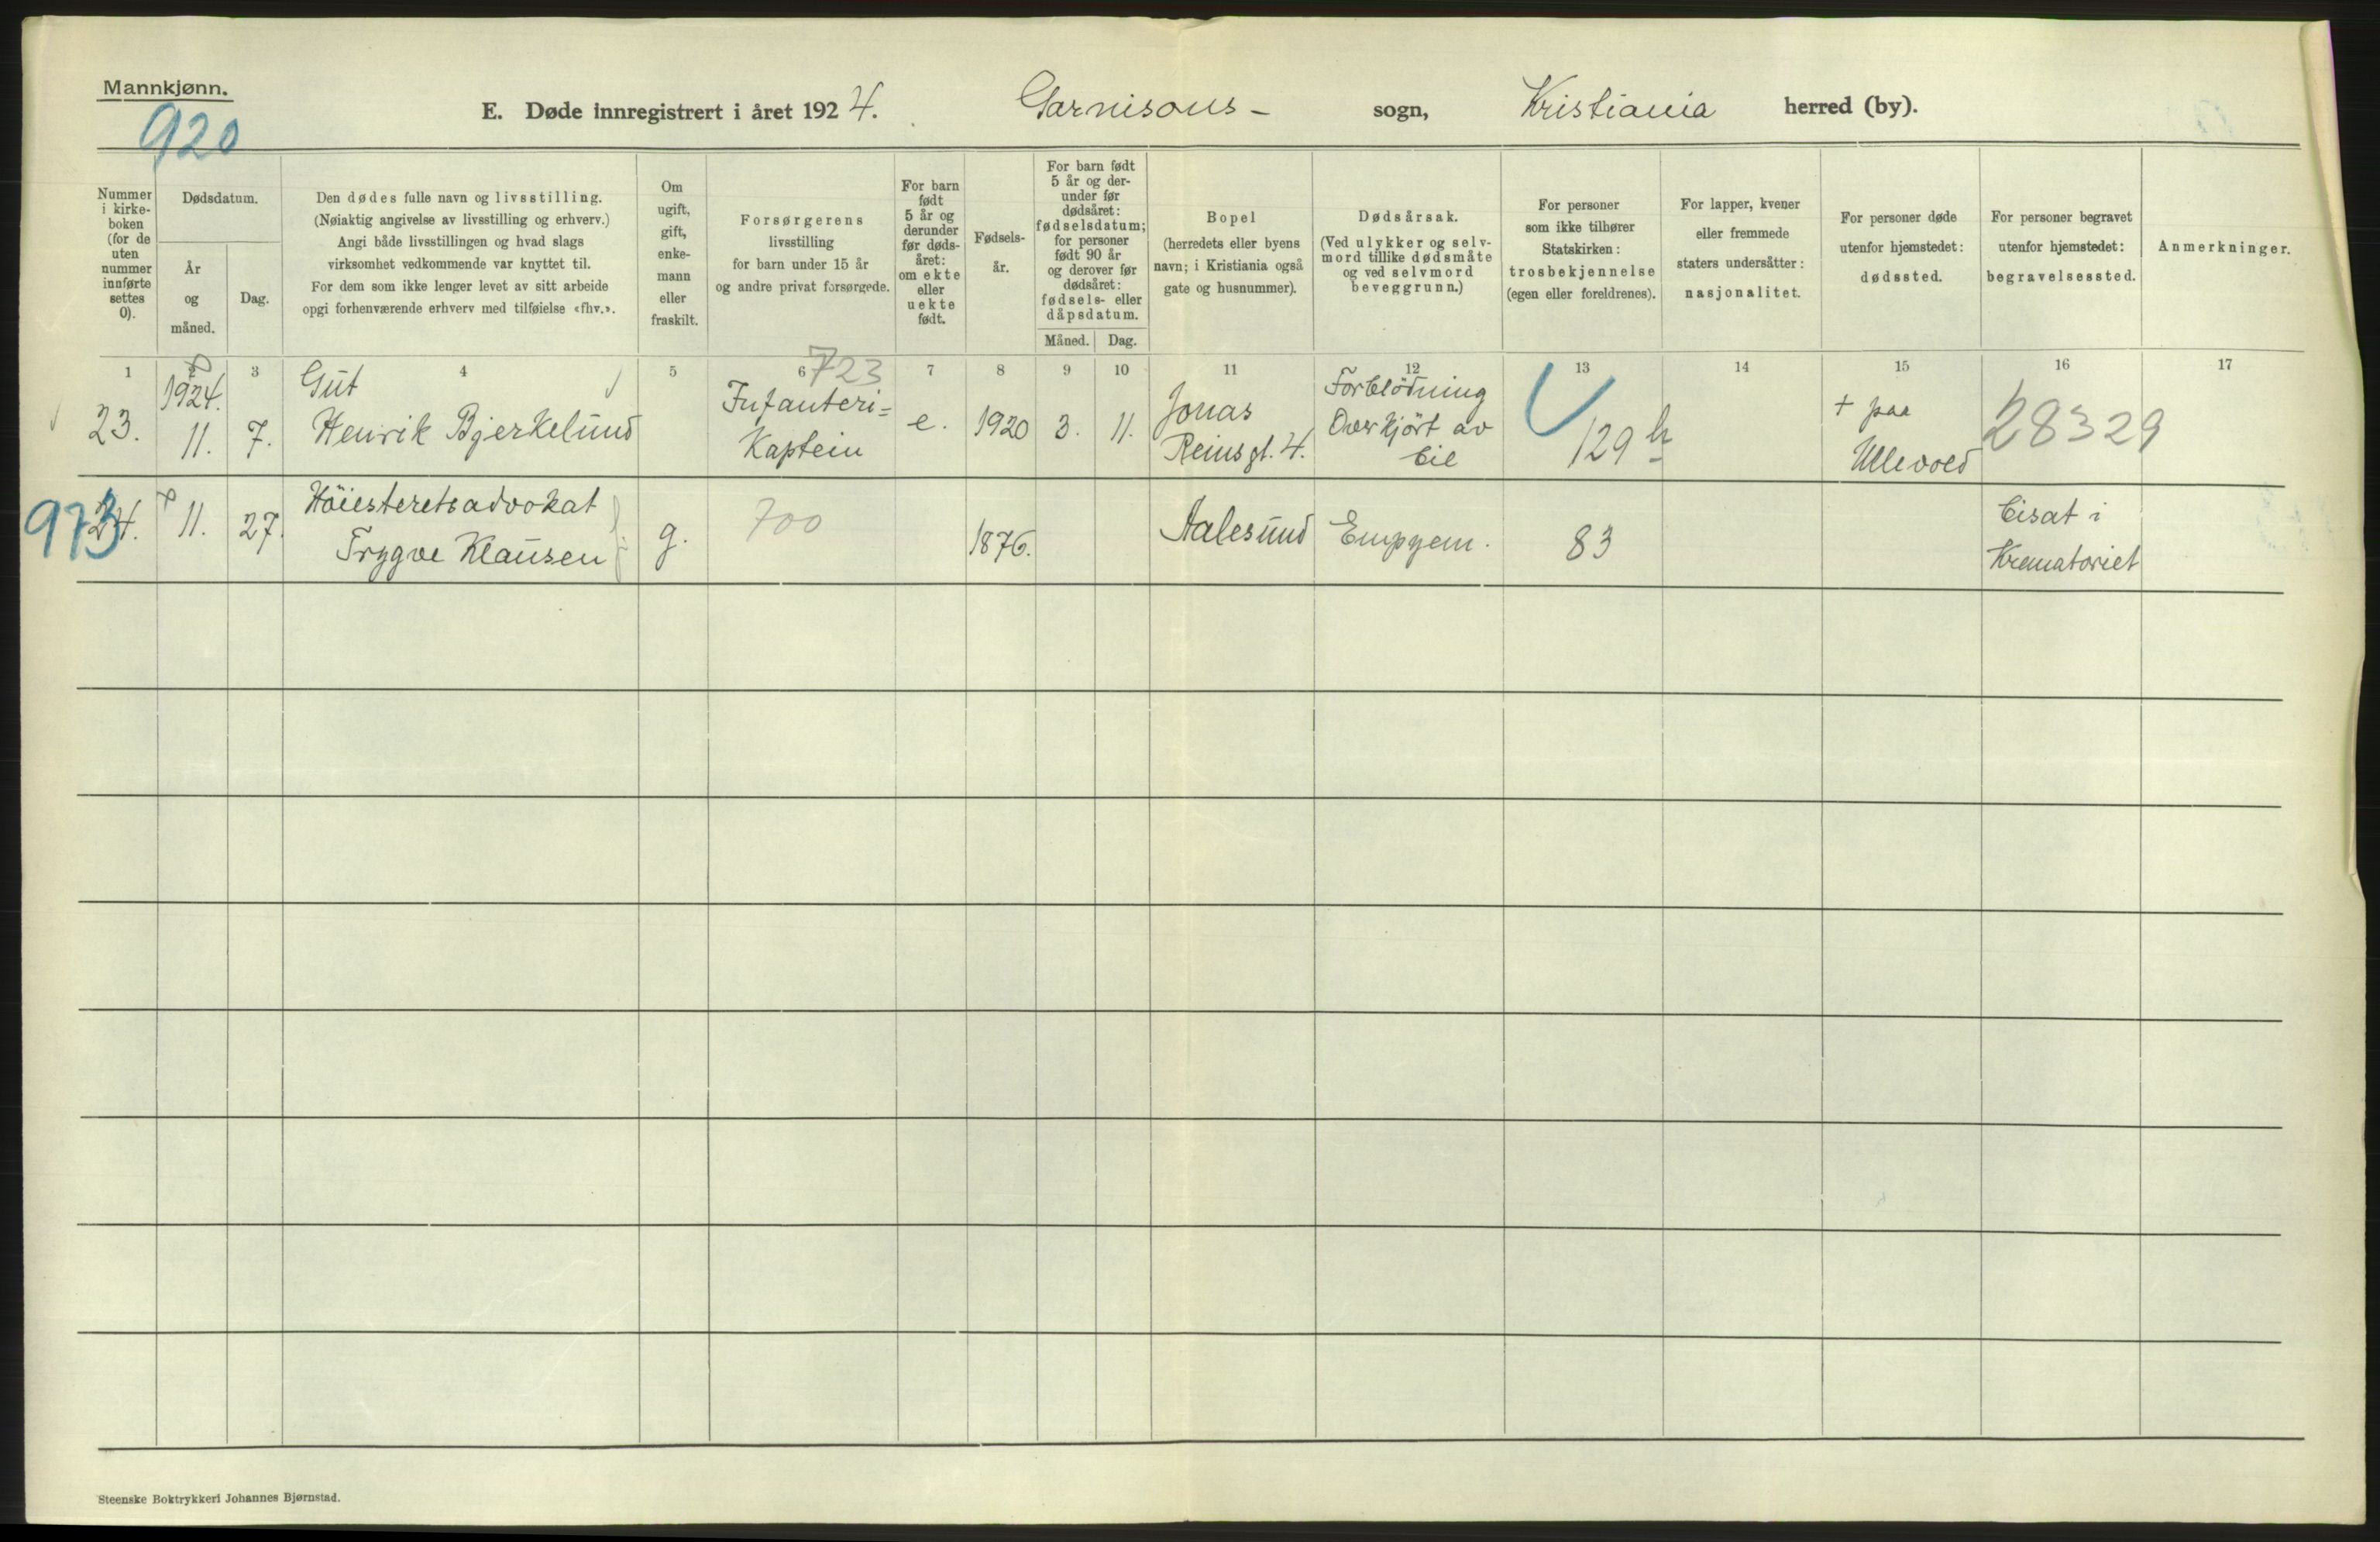 Mannkjønn.
920
E. Døde innregistrert i året 1924. Garnisons- sogn, Kristiania herred (by).
Nummer
i kirke-
boken
(for de
uten
nummer
innførte
settes
0).
Dødsdatum.
År
og
måned.
Dag.
Den dødes fulle navn og livsstilling.
(Nøiaktig angivelse av livsstilling og erhverv.)
Angi både livsstillingen og hvad slags
virksomhet vedkommende var knyttet til.
For dem som ikke lenger levet av sitt arbeide
opgi forhenværende erhverv med tilføielse «fhv.».
Om
ugift,
gift,
enke-
mann
eller
fraskilt.
Forsørgerens
livsstilling
for barn under 15 år
og andre privat forsørgede.
For barn
født
5 år og
derunder
før døds-
året:
om ekte
eller
uekte
født.
Fødsels-
år.
For barn født
5 år og der-
under før
dødsåret:
fødselsdatum;
for personer
født 90 år
og derover før
dødsåret:
fødsels- eller
dåpsdatum.
Måned. Dag.
Bopel
(herredets eller byens
navn; i Kristiania også
gate og husnummer).
Dødsårsak.
(Ved ulykker og selv-
mord tillike dødsmåte
og ved selvmord
beveggrunn.)
For personer
som ikke tilhører
Statskirken:
trosbekjennelse
(egen eller foreldrenes).
For lapper, kvener
eller fremmede
staters undersåtter:
nasjonalitet.
For personer døde
utenfor hjemstedet:
dødssted.
For personer begravet
utenfor hjemstedet:
begravelsessted.
Anmerkninger.
1 2 3 4 5 6 7 8 9 10 11 12 13 14 15 16 17
23.
1924.
11.
7.
Gut
Henrik Bjerkelund
723
Infanteri=
Kaptein
e.
1920
3.
11.
Jonas
Reinsgt. 4.
Forblödning
Overkjört av
bil
129
+ paa
Ullevoed
28329
973
24.
11.
27.
Höiesteretsadvokat
Trygve Klausen
g.
700
1876.
Aalesund
Empyem.
83
bisat i
Krematoriet
Steenske Boktrykkeri Johannes Bjørnstad.